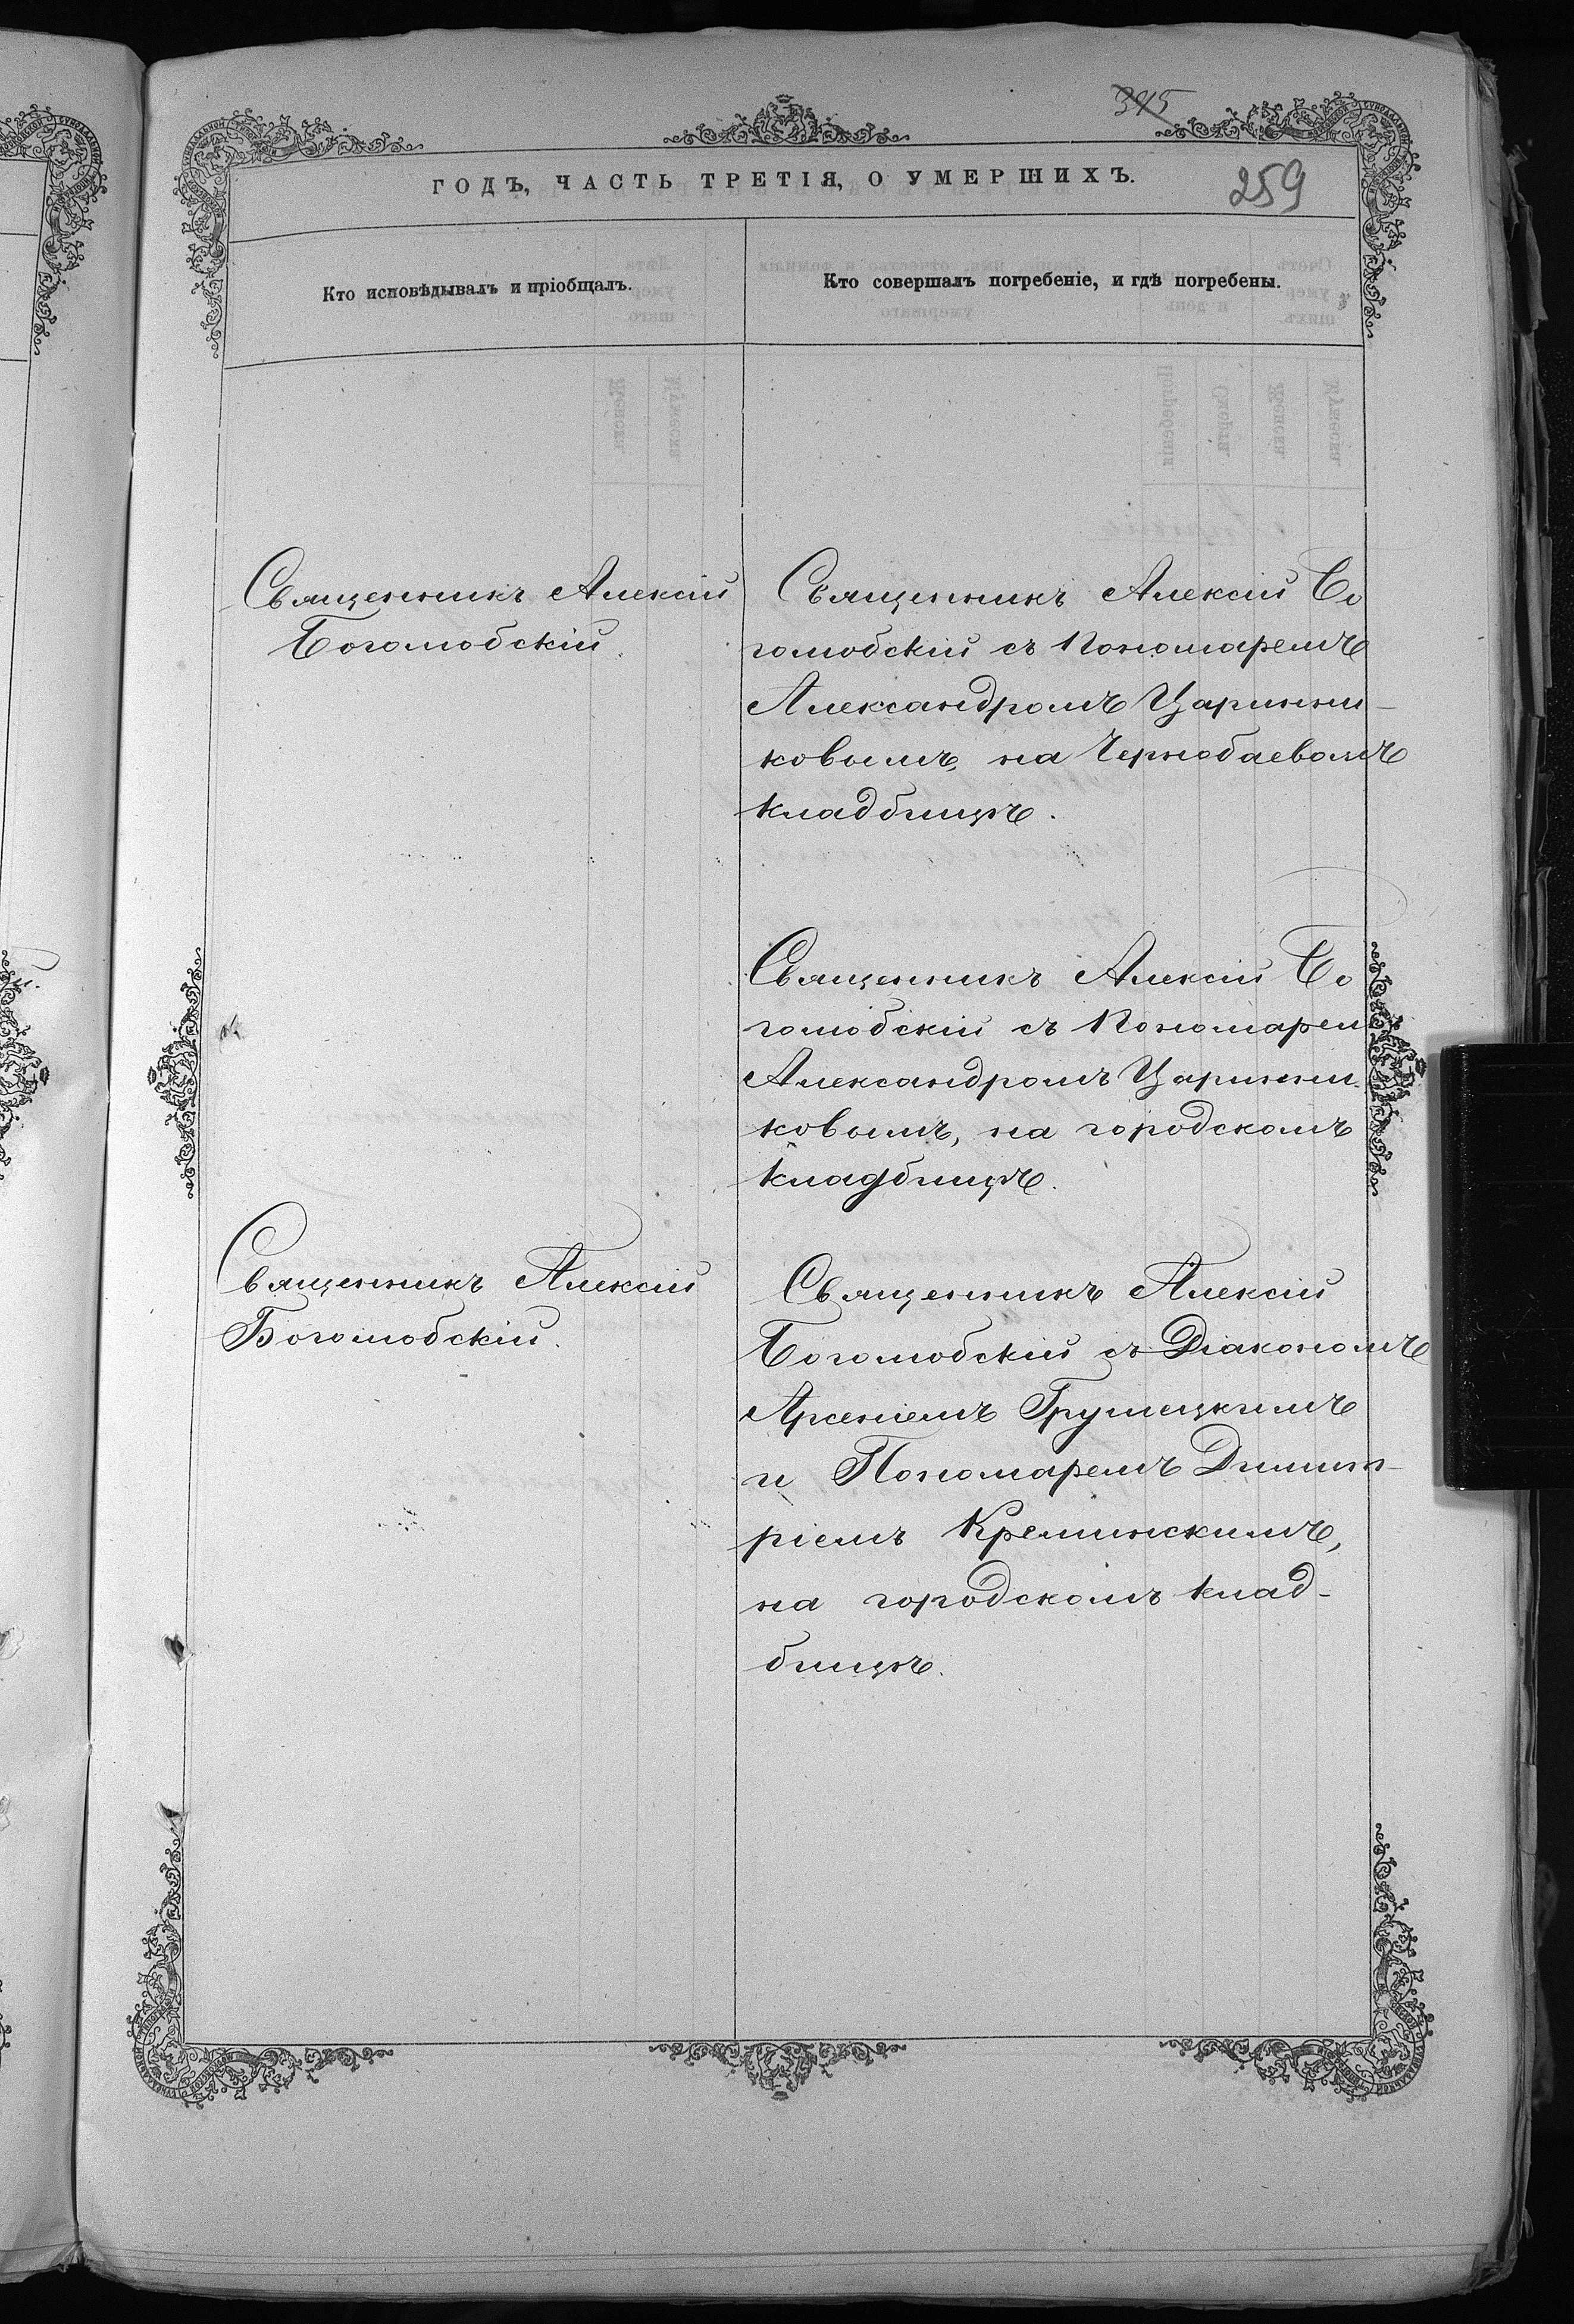 345
ГОДЪ, ЧАСТЬ ТРЕТІЯ, О УМЕРШИХЪ.
259
Кто исповѣдывалъ и пріобщалъ.
Кто совершалъ погребеніе, и гдѣ погребены.
Священникъ Алексій
Боголюбскій.
Священникъ Алексій Бо
голюбскій съ Пономаремъ
Александромъ Царинни-
ковымъ, на Чернобаевомъ
кладбищѣ.
Священникъ Алексій Бо
голюбскій съ Пономарем
Александромъ Царинни-
ковымъ, на городскомъ
кладбищѣ.
Священникъ Алексій
Боголюбскій.
Священникъ Алексій
Боголюбскій съ Діакономъ
Арсеніемъ Грушецкимъ
и Пономаремъ Димит-
ріемъ Креминскимъ,
на городскомъ клад-
бищѣ.